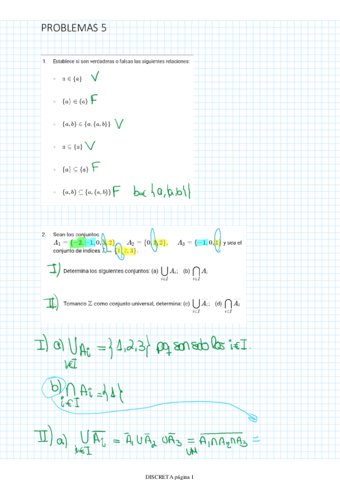 PROBLEMAS 5
1. Establece si son verdaderas o falsas las siguientes relaciones:
a ∈ {a} V
{a} ∈ {a} F
{a, b} ∈ {a, {a, b}} V
a ⊆ {a} V
{a} ⊆ {a} F
{a, b} ⊆ {a, {a, b}} F b∉{a,{a,b}}
2. Sean los conjuntos
A₁ = {−2, −1, 0, 1, 2}, A₂ = {0, 1, 2}, A₃ = {−1, 0, 1} y sea el
conjunto de índices I = {1, 2, 3}.
I) Determina los siguientes conjuntos: (a) ⋃ Aᵢ; (b) ⋂ Aᵢ
i∈I i∈I
II) Tomando ℤ como conjunto universal, determina: (c) ⋃ Aᵢ; (d) ⋂ Aᵢ
i∈I i∈I
I) a) ⋃ Aᵢ = {1,2,3} pq son solo los i∈I.
i∈I
b) ⋂ Aᵢ = {1}
i∈I
II) a) ⋃ A̅ᵢ = A̅₁ ∪ A̅₂ ∪ A̅₃ = A₁∩A₂∩A₃ =
i∈I
DISCRETA página 1